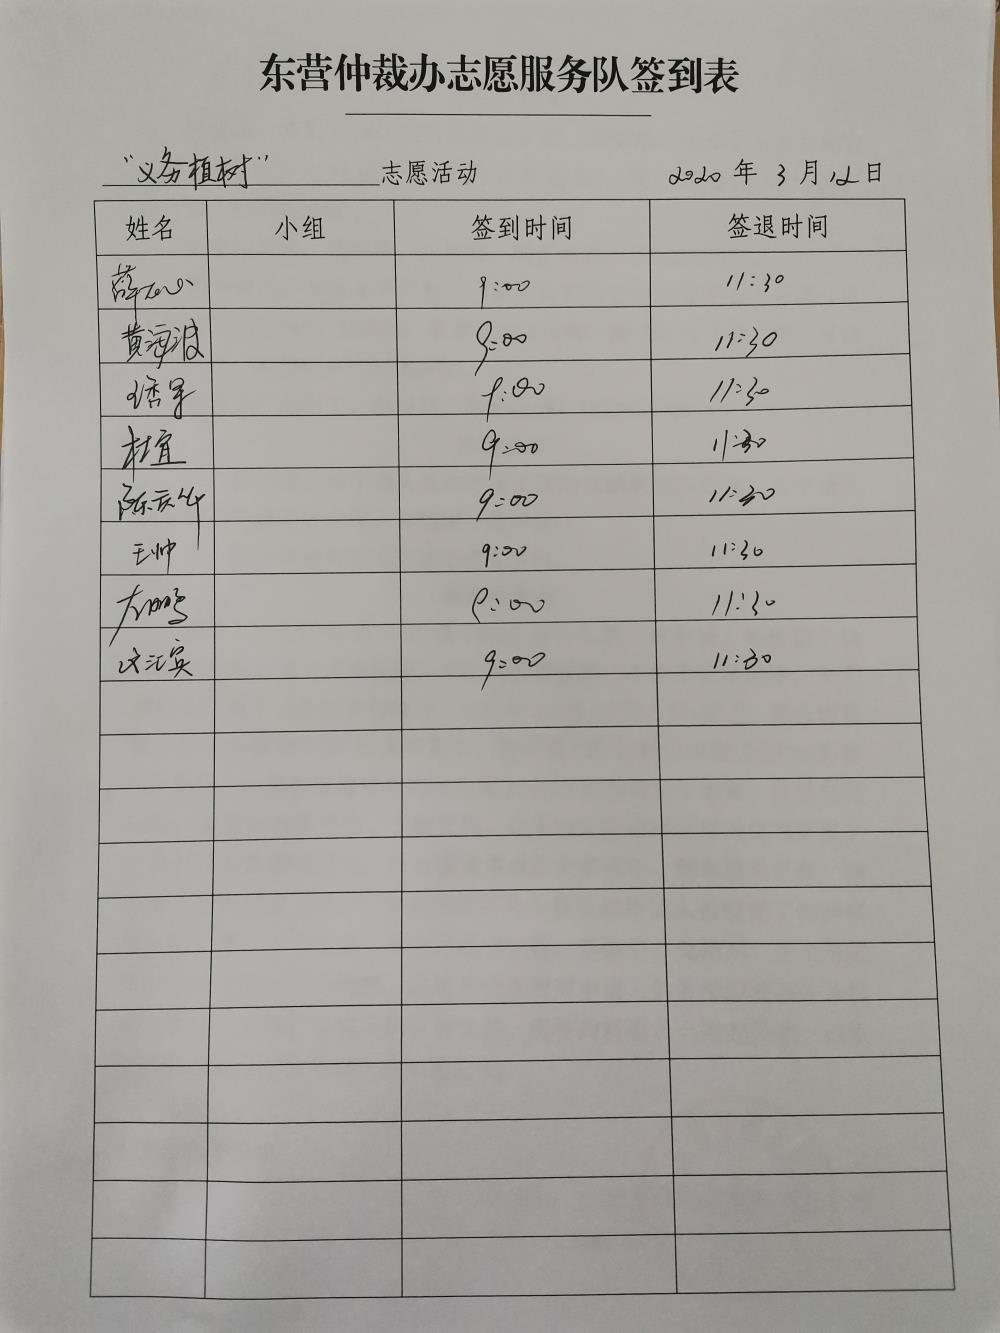 东营仲裁办志愿服务队签到表
“义务植树” 志愿活动 2020 年 3 月 12 日
姓名 小组 签到时间 签退时间
薛 9:00 11:30
黄海波 9:00 11:30
9:00 11:30
杜宜 9:00 11:30
陈庆华 9:00 11:30
王帅 9:00 11:30
左鹏 9:00 11:30
9:00 11:30